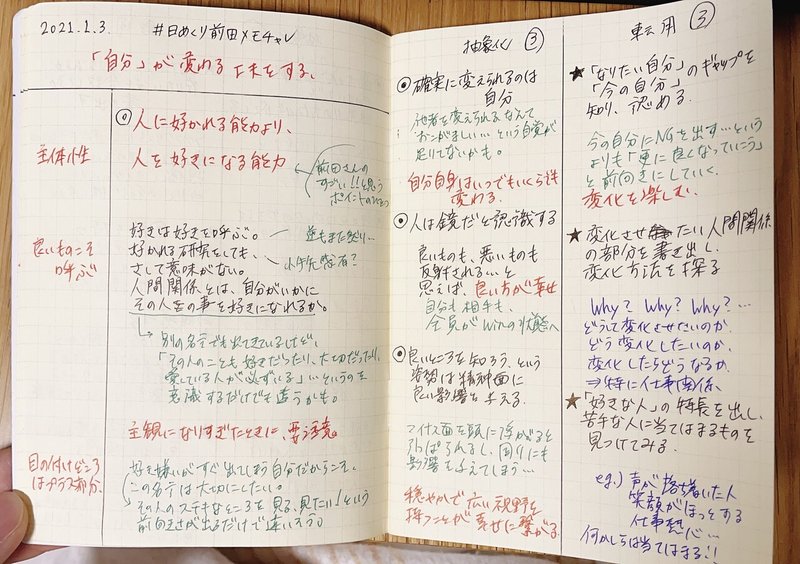 2021.1.3. #日めくり前田メモチャレ
「自分」が変わる
をする。
主体性
良いものこそ
呼ぶ
目の付けどころ
はプラス部分。
人に好かれる能力より、
人を好きになる能力
前田さんの
すごい!!と思う
ポイントのひとつ
好きは好きを呼ぶ。
好かれる研究をしても、
さして意味がない。
人間関係とは、自分がいかに
その人をの事を好きになれるか。
逆もまた然り…
小手先感有?
別の名言でも出てきているけど、
「その人のことも好きだったり、大切だったり、
愛している人が必ずいる」…というのを
意識するだけでも違うかも。
主観になりすぎたときに、要注意。
好き嫌いがすぐ出てしまう自分だからこそ、
この名言は大切にしたい。
その人のステキなところを見る、見たい!という
前向きさが出るだけで違いそう。
抽象化 ③
確実に変えられるのは
自分
他者を変えられるなんて
おこがましい…という自覚が
足りてないかも。
自分自身はいつでもいくらでも
変わる。
人は鏡だと認識する
良いものも、悪いものも
反射される…と
思えば、良い方が幸せ
自分も相手も、
全員がWinの状態へ
良いところを知ろう、という
姿勢は精神面に
良い影響を与える。
マイナス面を頭に浮かべると
引っぱられるし、周りにも
影響を与えてしまう…
穏やかで広い視野を
持つことが幸せに繋がる。
転用 ③
★「なりたい自分」のギャップを
「今の自分」
知り、認める。
今の自分にNGを出す…という
よりも「更に良くなっていこう」
と前向きにしていく。
変化を楽しむ。
★変化させたい人間関係
の部分を書き出し、
変化方法を探る
Why? Why? Why?…
どうして変化させたいのか、
どう変化したいのか、
変化したらどうなるか、
⇒特に仕事関係、
★「好きな人」の特長を出し、
苦手な人に当てはまるものを
見つけてみる。
eg.) 声が落ち着いた人
笑顔がほっとする
仕事熱心…
何かしらは当てはまる!!